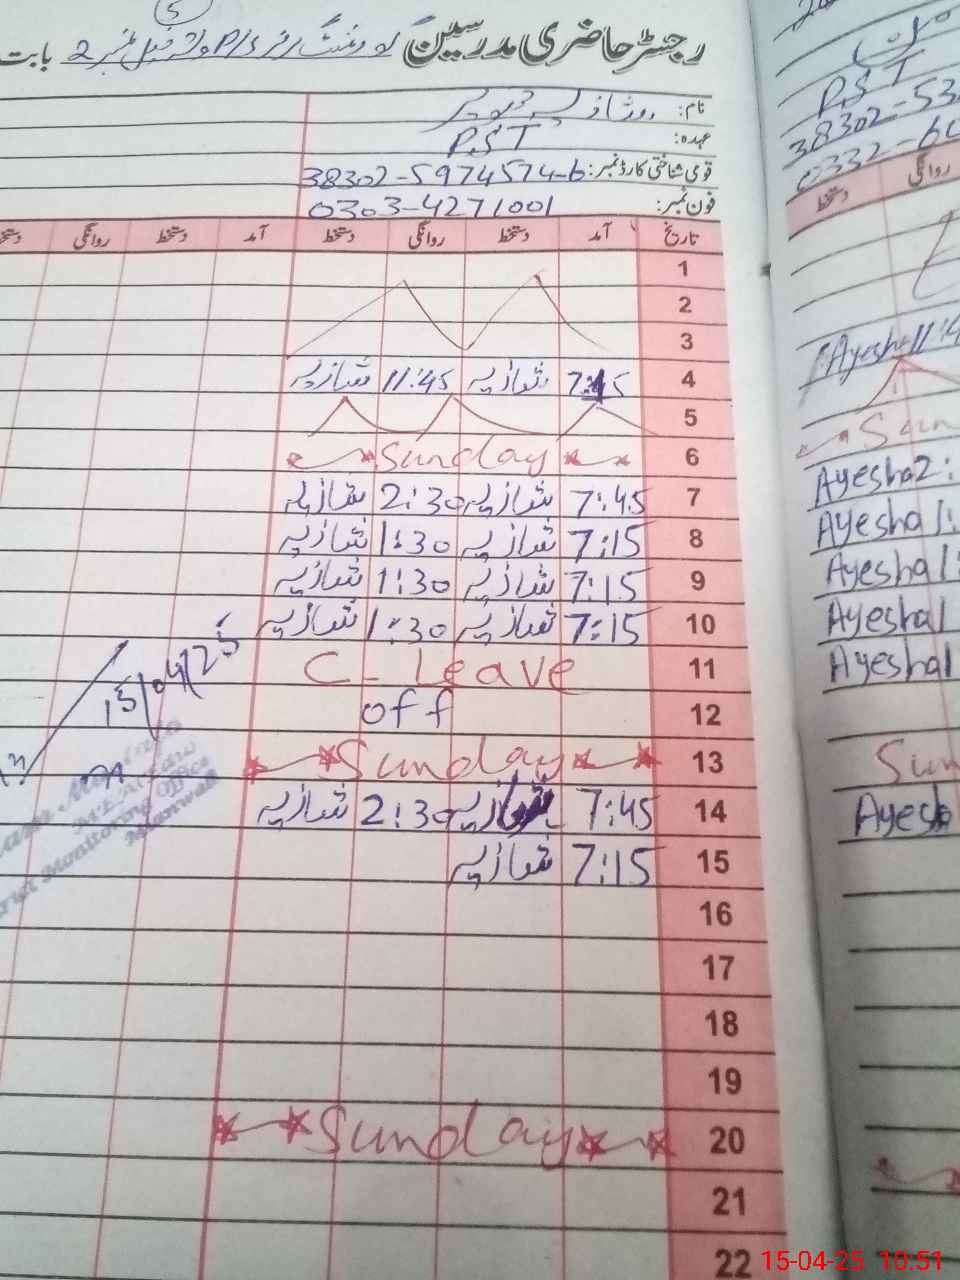 رجسٹر حاضری مدرسین گورنمنٹ P/S نمبر 2 بابت
نام:
عہدہ: P.S.T
قومی شناختی کارڈ نمبر: 38302-5974574-6
فون نمبر: 0303-4271001
تاریخ آمد دستخط روانگی دستخط آمد دستخط روانگی دستخط
1
2
3
4 7:15 شازیہ 11:45 شازیہ
5
6 Sunday
7 7:45 شازیہ 2:30 شازیہ
8 7:15 شازیہ 1:30 شازیہ
9 7:15 شازیہ 1:30 شازیہ
10 7:15 شازیہ 1:30 شازیہ
11 C-Leave
12 off
13 Sunday
14 7:45 شازیہ 2:30 شازیہ
15 7:15 شازیہ
16
17
18
19
20 Sunday
21
22
15/04/25
Monitoring
Mianwali
P.S.T
38302-53
0332-60
روانگی
دستخط
Ayesha 11:4
Sun
Ayesha 2:
Ayesha 1:
Ayesha 1:
Ayesha 1
Ayesha 1
Sun
Ayesh
15-04-25 10:51